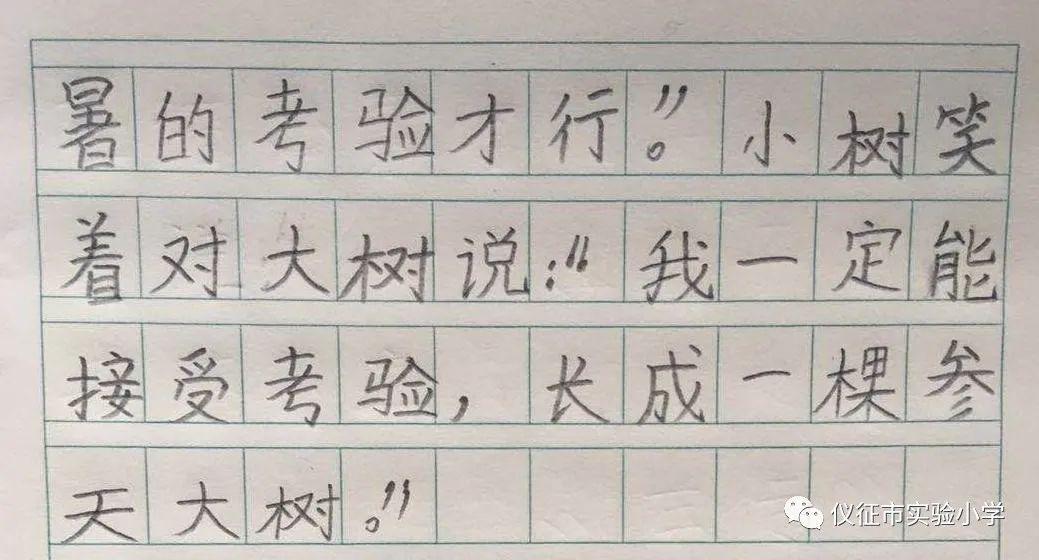 暑的考验才行。”小树笑
着对大树说：“我一定能
接受考验，长成一棵参
天大树。”
仪征市实验小学